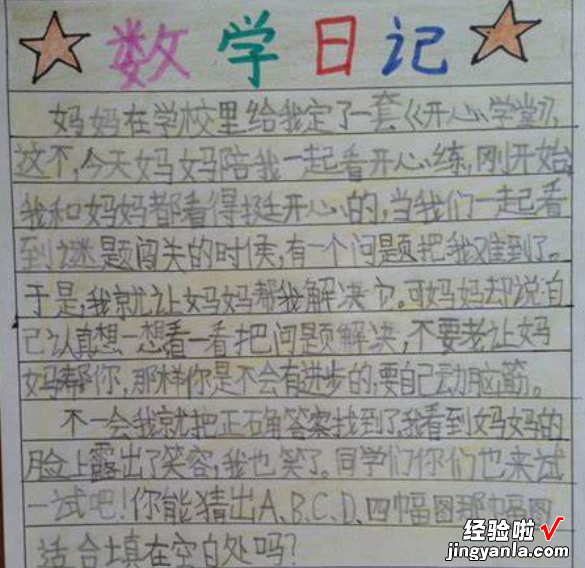 数学日记
妈妈在学校里给我定了一套《开心学堂》,
这不,今天妈妈陪我一起看开心练,刚开始
我和妈妈都看得挺开心的,当我们一起看
到谜题闯关的时候,有一个问题把我难到了。
于是,我就让妈妈帮我解决它。可妈妈却说:自
己认真想一想看一看把问题解决,不要老让妈
妈帮你,那样你是不会有进步的,要自己动脑筋。
不一会我就把正确答案找到了,我看到妈妈的
脸上露出了笑容,我也笑了。同学们你们也来试
一试吧!你能猜出A、B、C、D、四幅图那幅图
适合填在空白处吗?
经验啦√
jingyanla.com